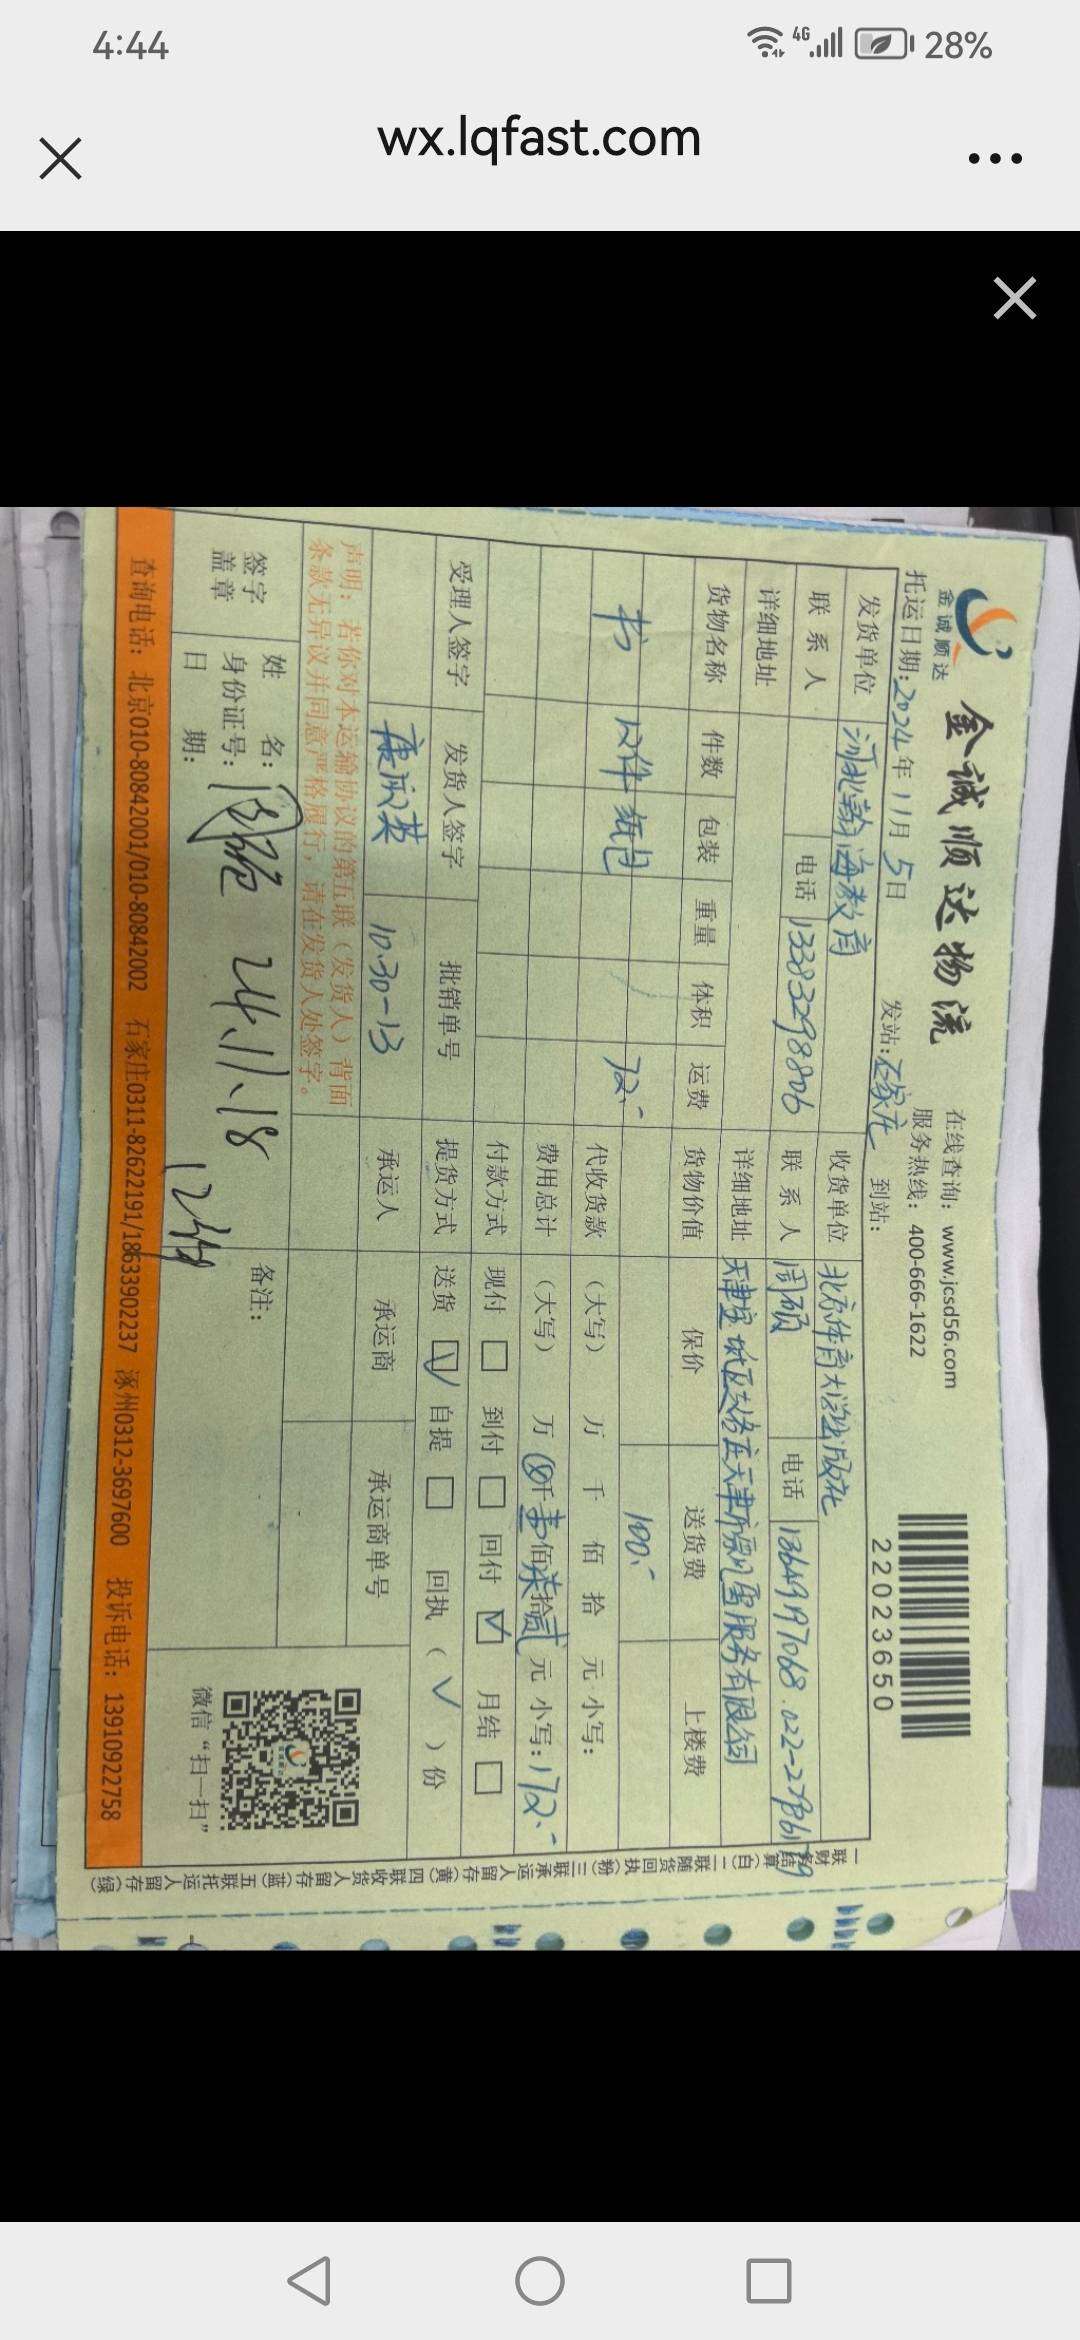 4:44
4G
28%
wx.lqfast.com
金诚顺达
金诚顺达物流
在线查询：www.jcsd56.com
服务热线：400-666-1622
22023650
托运日期：2024年11月5日
发站：石家庄
到站：
发货单位 河北瀚海教育
收货单位 北京体育大学出版社
联系人
电话 13383298806
联系人 周硕
电话
详细地址
详细地址
货物名称 件数 包装 重量 体积 运费 货物价值 保价 送货费 上楼费
书 12件 纸包 72.- 100.-
代收货款 （大写） 万 千 佰 拾 元 小写：
费用总计 （大写） 万 ⊗千壹佰柒拾贰元 小写：172.-
付款方式 现付 □ 到付 □ 回付 ☑ 月结 □
受理人签字 发货人签字 批销单号
提货方式 送货 ☑ 自提 □ 回执（√）份
10.30-13
承运人 承运商 承运商单号
声明：若你对本运输协议的第五联（发货人）背面
条款无异议并同意严格履行，请在发货人处签字。
签字
盖章
姓名：
身份证号：
日期：
24.11.18
12件
备注：
微信“扫一扫”
查询电话：北京010-80842001/010-80842002 石家庄0311-82622191/18633902237 涿州0312-3697600 投诉电话：13910922758
一联财务结算（白）二联随货回执（粉）三联承运人留存（黄）四联收货人留存（蓝）五联托运人留存（绿）